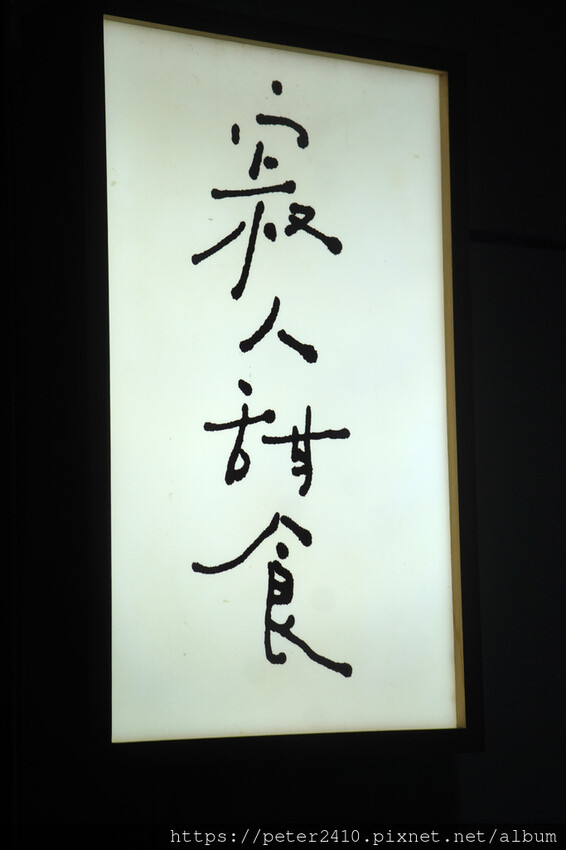 寂人甜食
https://peter2410.pixnet.net/album